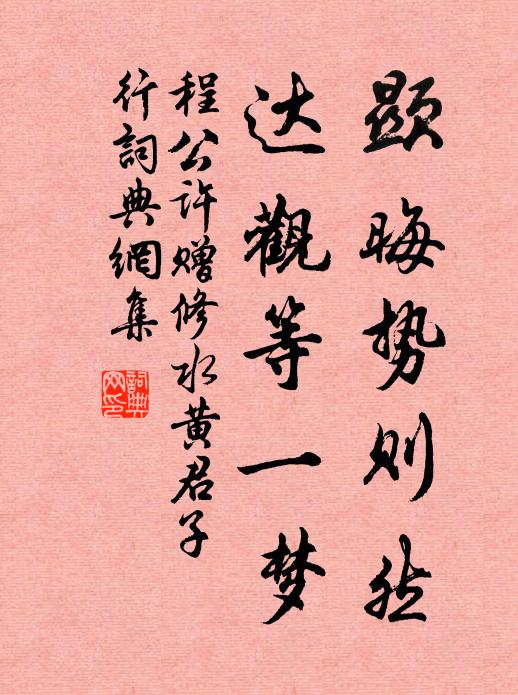 顕晦势则然
达觀等一梦
程公许赠修水黄君子
行詞典網集
詞典网印